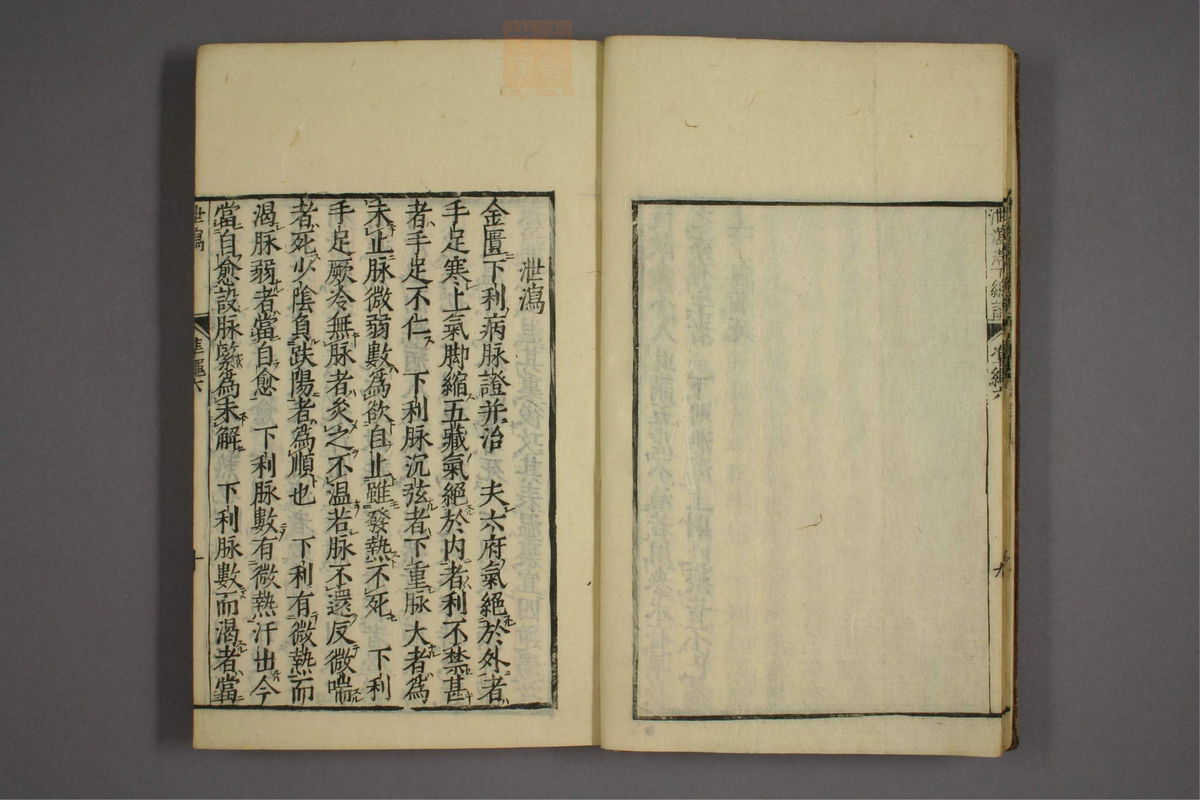 泄瀉歴下總論
準繩六
九
泄瀉
金匱下利病脉證并治　夫六府氣絕於外者
手足寒上氣脚縮五藏氣絕於内者利不禁甚
者手足不仁　下利脉沉弦者下重脉大者爲
未止脉微弱數爲欲自止雖發熱不死　下利
手足厥冷無脉者灸之不溫若脉不還反微喘
者死少陰負趺陽者爲順也　下利有微熱而
渴脉弱者當自愈　下利脉數有微熱汗出今
當自愈設脉緊爲未解　下利脉數而渴者當
泄瀉
準繩六
十